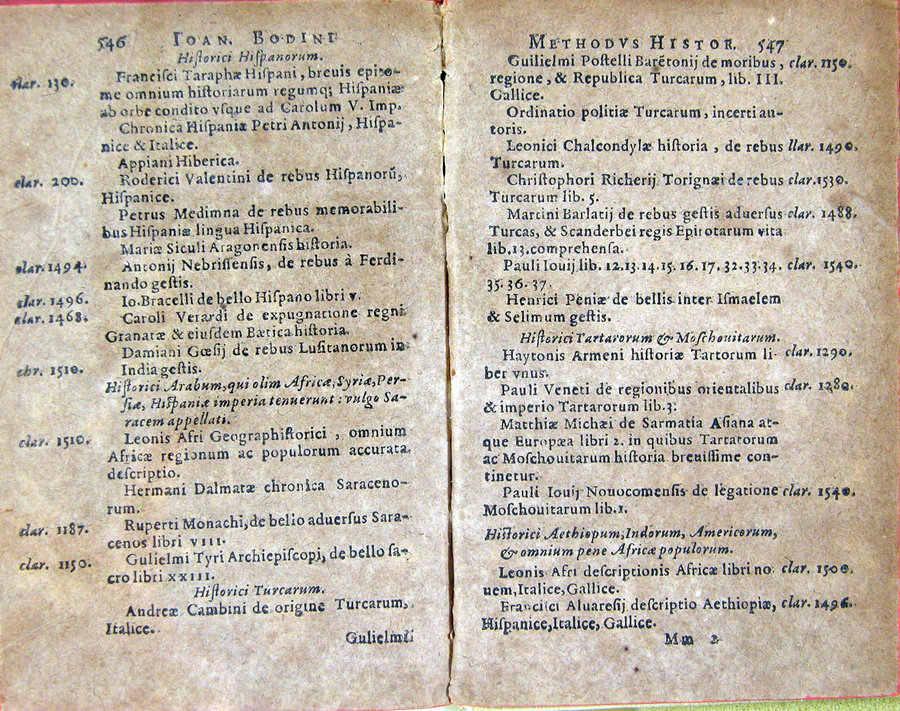 546 IOAN. BODINI
Hiſtorici Hiſpanorum.
clar. 130. Franciſci Taraphæ Hiſpani, breuis epito-
me omnium hiſtoriarum regumq; Hiſpaniæ
ab orbe condito vſque ad Carolum V. Imp.
Chronica Hiſpaniæ Petri Antonij, Hiſpa-
nice & Italice.
Appiani Hiberica.
clar. 200. Roderici Valentini de rebus Hiſpanorū,
Hiſpanice.
Petrus Medimna de rebus memorabili-
bus Hiſpaniæ lingua Hiſpanica.
Mariæ Siculi Aragonenſis hiſtoria.
clar. 1494. Antonij Nebriſſenſis, de rebus à Ferdi-
nando geſtis.
clar. 1496. Io. Bracelli de bello Hiſpano libri v.
clar. 1468. Caroli Verardi de expugnatione regni
Granatæ & eiuſdem Bætica hiſtoria.
Damiani Gœſij de rebus Luſitanorum in
chr. 1510. India geſtis.
Hiſtorici Arabum, qui olim Africæ, Syriæ, Per-
ſiæ, Hiſpaniæ imperia tenuerunt: vulgo Sa-
racem appellati.
clar. 1510. Leonis Afri Geographiſtorici, omnium
Africæ regionum ac populorum accurata
deſcriptio.
Hermani Dalmatæ chronica Saraceno-
rum.
clar. 1187. Ruperti Monachi, de belio aduerſus Sara-
cenos libri VIII.
clar. 1150. Gulielmi Tyri Archiepiſcopi, de bello ſa-
cro libri XXIII.
Hiſtorici Turcarum.
Andreæ Cambini de origine Turcarum,
Italice.
Gulielmi
METHODVS HISTOR. 547
Guilielmi Poſtelli Barētonij de moribus, clar. 1150.
regione, & Republica Turcarum, lib. III.
Gallice.
Ordinatio politiæ Turcarum, incerti au-
toris.
Leonici Chalcondylæ hiſtoria, de rebus llar. 1490.
Turcarum.
Chriſtophori Richerij Torignæi de rebus clar. 1530.
Turcarum lib. 5.
Martini Barlatij de rebus geſtis aduerſus clar. 1488.
Turcas, & Scanderbei regis Epirotarum vita
lib. 13. comprehenſa.
Pauli Iouij lib. 12. 13. 14. 15. 16. 17. 32. 33. 34. clar. 1540.
35. 36. 37.
Henrici Peniæ de bellis inter Iſmaelem
& Selimum geſtis.
Hiſtorici Tartarorum & Moſchouitarum.
Haytonis Armeni hiſtoriæ Tartorum li- clar. 1290.
ber vnus.
Pauli Veneti de regionibus orientalibus clar. 1280.
& imperio Tartarorum lib. 3:
Matthiæ Michæi de Sarmatia Aſiana at-
que Europæa libri 2. in quibus Tartatorum
ac Moſchouitarum hiſtoria breuiſſime con-
tinetur.
Pauli Iouij Nouocomenſis de legatione clar. 1540.
Moſchouitarum lib. 1.
Hiſtorici Aethiopum, Indorum, Americorum,
& omnium pene Africæ populorum.
Leonis Afri deſcriptionis Africæ libri no clar. 1500.
uem, Italice, Gallice.
Franciſci Aluareſij deſcriptio Aethiopiæ, clar. 1496.
Hiſpanice, Italice, Gallice.
Mm 2